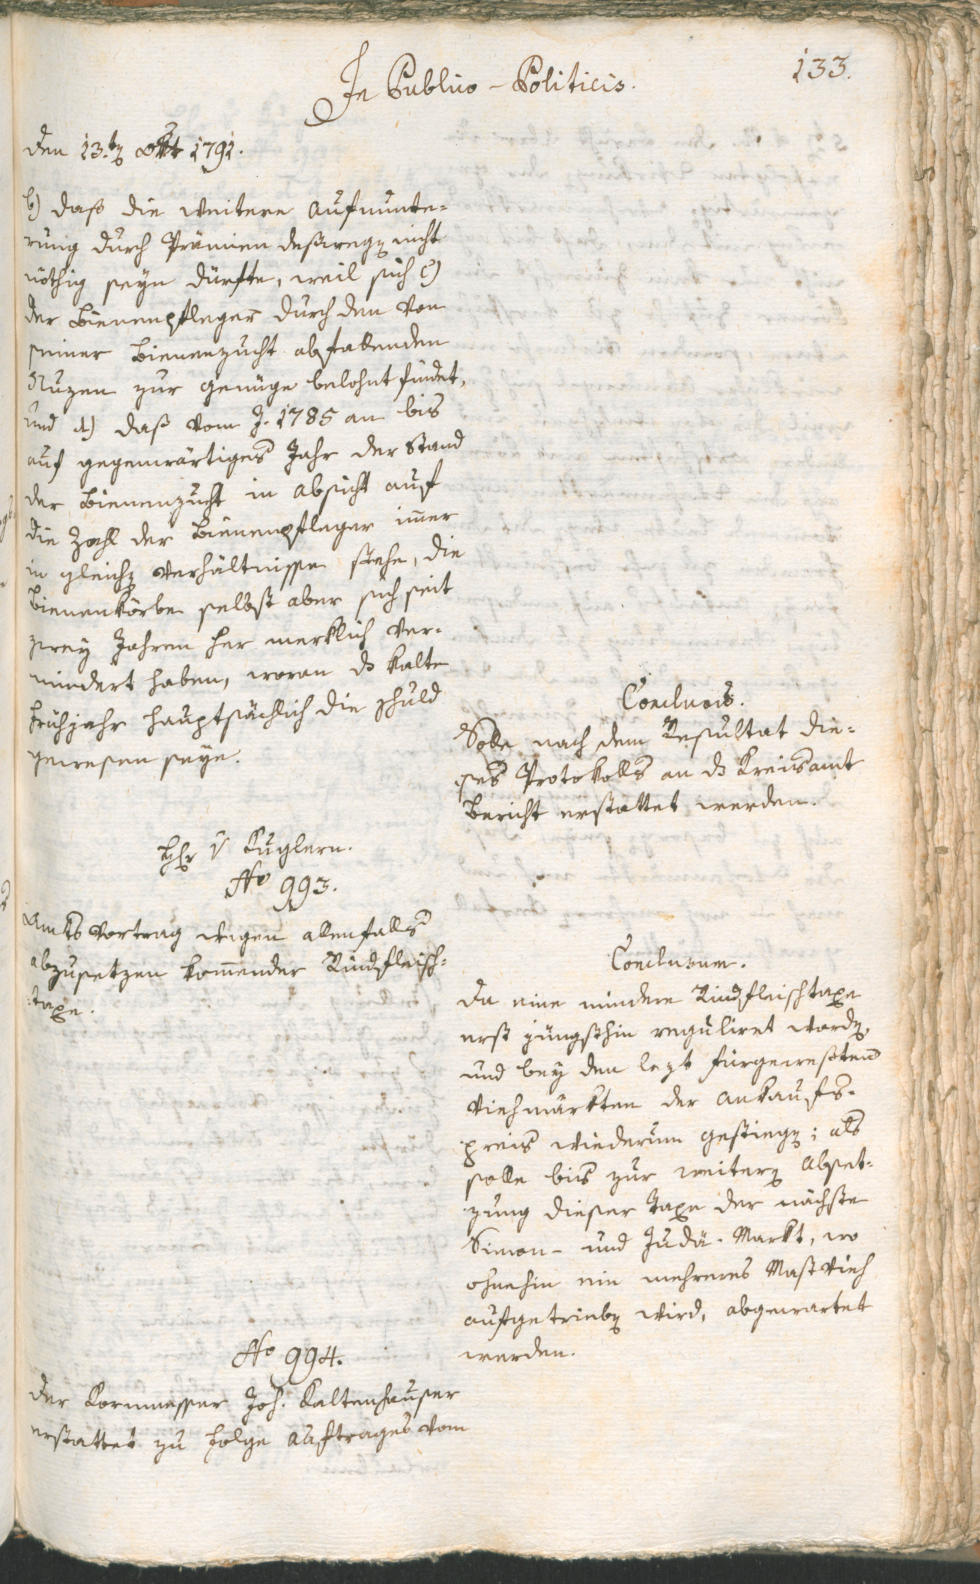 133.
In Publico-Politicis.
den 13.ten Okt 1791.
b) daß die weitere Aufmunte-
rung durch Prämien deßwegen nicht
nöthig seyn dürfte, weil sich c)
der Bienenpfleger durch den von
seiner Bienenzucht abfallenden
Nuzen zur genüge belohnt findet,
und d) daß vom J. 1785 an bis
auf gegenwärtiges Jahr der Stand
der Bienenzucht in Absicht auf
die Zahl der Bienenpfleger imer
in gleichen Verhältnisse stehe, die
Bienenkörbe selbst aber sich seit
zwey Jahren her merklich ver-
mindert haben, woran ds kalte
Frühjahr hauptsächlich die Schuld
gewesen seye.
Conclusis.
Solle nach dem Resultat die-
ses Protokolls an ds Kreisamt
Bericht erstattet werden.
Hr v Kuglern.
No 993.
Amts Vortrag wegen allenfalls
abzusetzen komender Rindfleisch-
taxe.
Conclusum.
Da eine mindere Rindfleischtaxe
erst jüngsthin regulirt worden,
und bey den lezt fürgewesten
Viehmärkten der Ankaufs-
preis wiederum gestiegen; als
solle bis zur weitern Abset-
zung dieser Taxe der nächste
Simon- und Judä-Markt, wo
ohnehin ein mehreres Mastvieh
aufgetrieben wird, abgewartet
werden.
No 994.
Der Kornmesser Joh. Kaltenhauser
erstattet zu Folge Auftrages vom